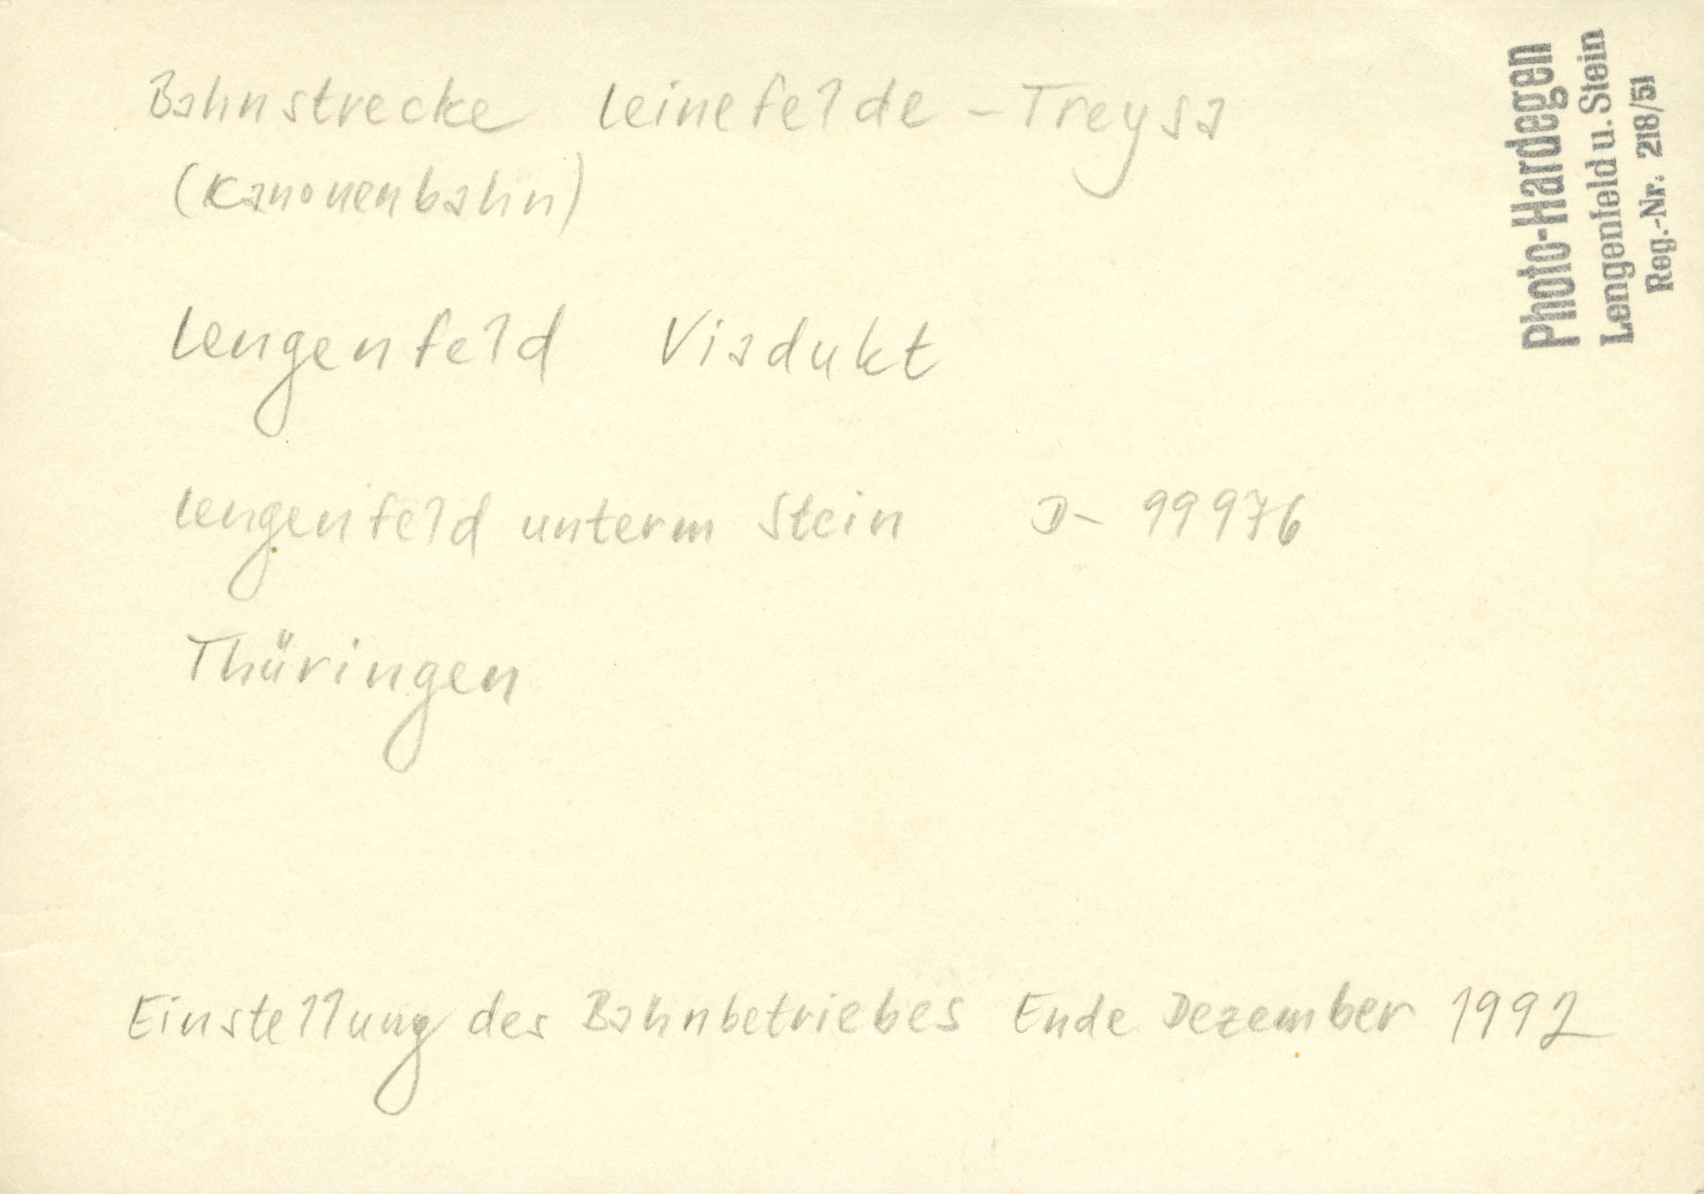 Bahnstrecke Leinefelde - Treysa
(Kanonenbahn)
Lengenfeld Viadukt
Lengenfeld unterm Stein D- 99976
Thüringen
Einstellung des Bahnbetriebes Ende Dezember 1992
Photo-Hardegen
Lengenfeld u. Stein
Reg.-Nr. 218/51